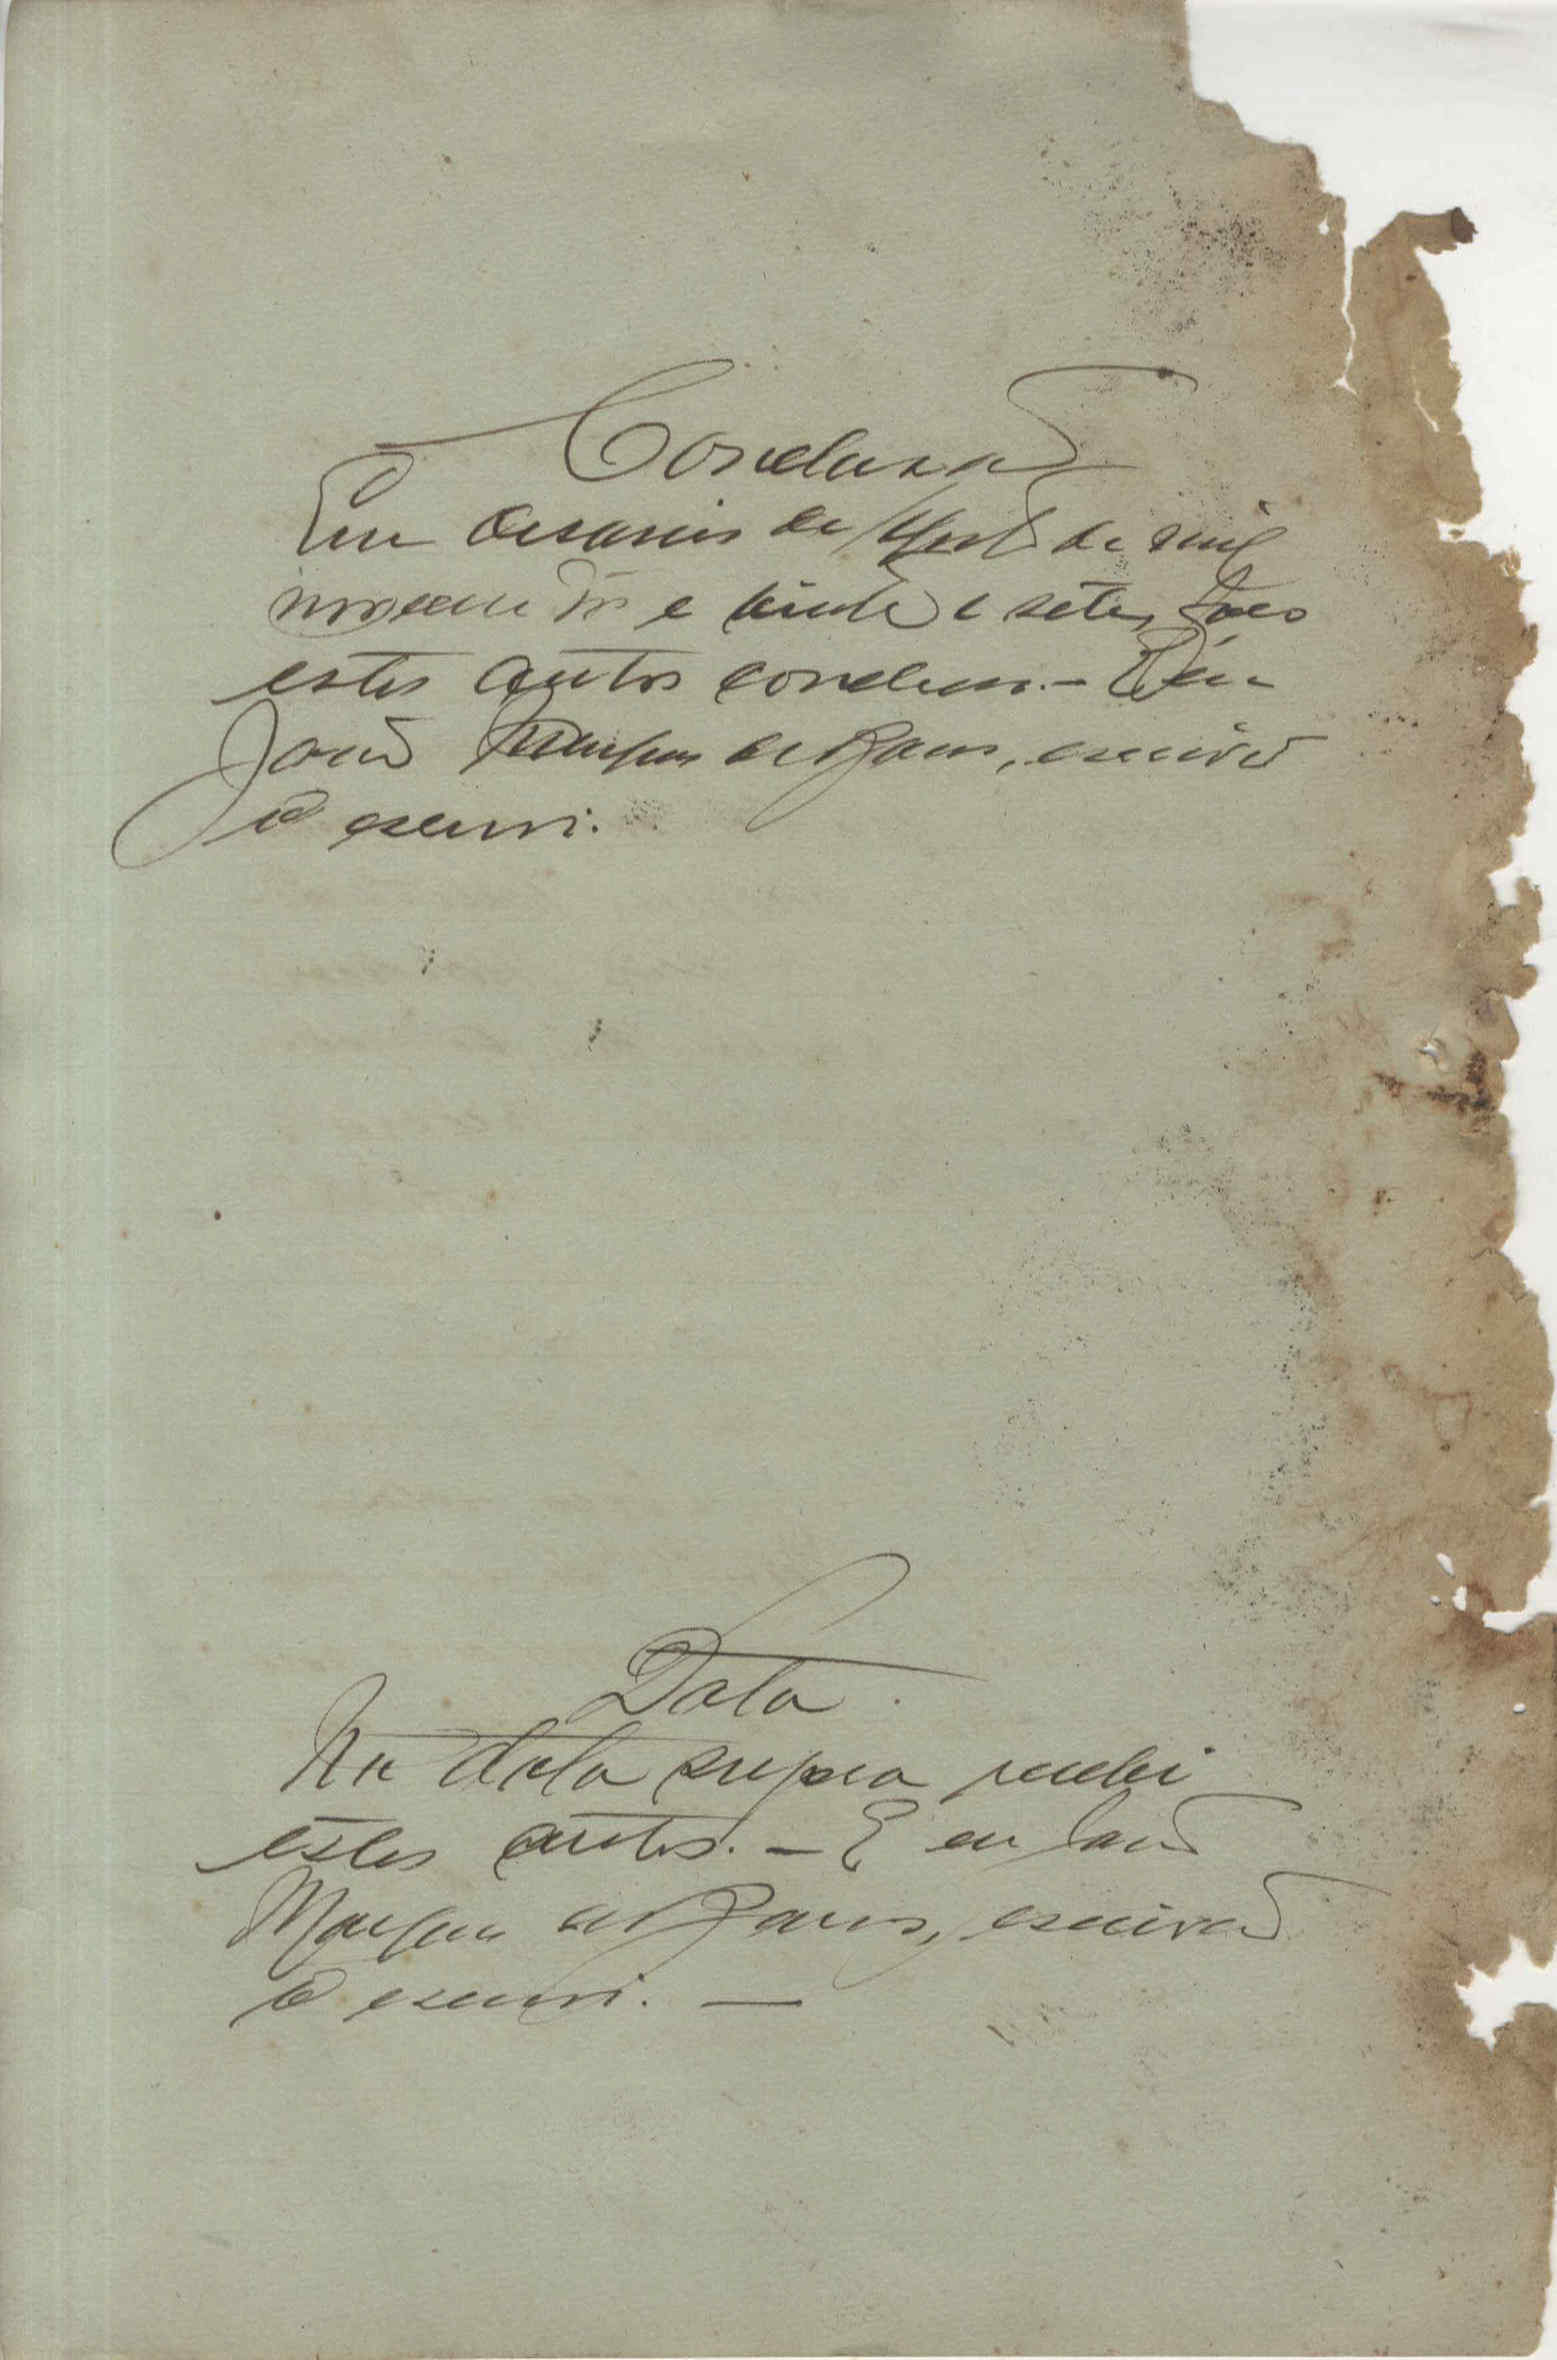 Conclusão
Em deseseis de de mil
novecentos e vinte e sete, faço
estes autos conclusos. - Eu
João Marques de, escrivão
o escrevi.
Data
Na data supra recebi
estes autos. - E eu João
Marques de, escrivão
o escrevi. -